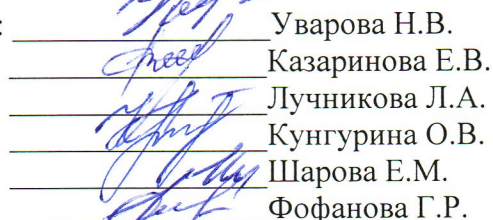 : Уварова Н.В.
Казаринова Е.В.
Лучникова Л.А.
Кунгурина О.В.
Шарова Е.М.
Фофанова Г.Р.